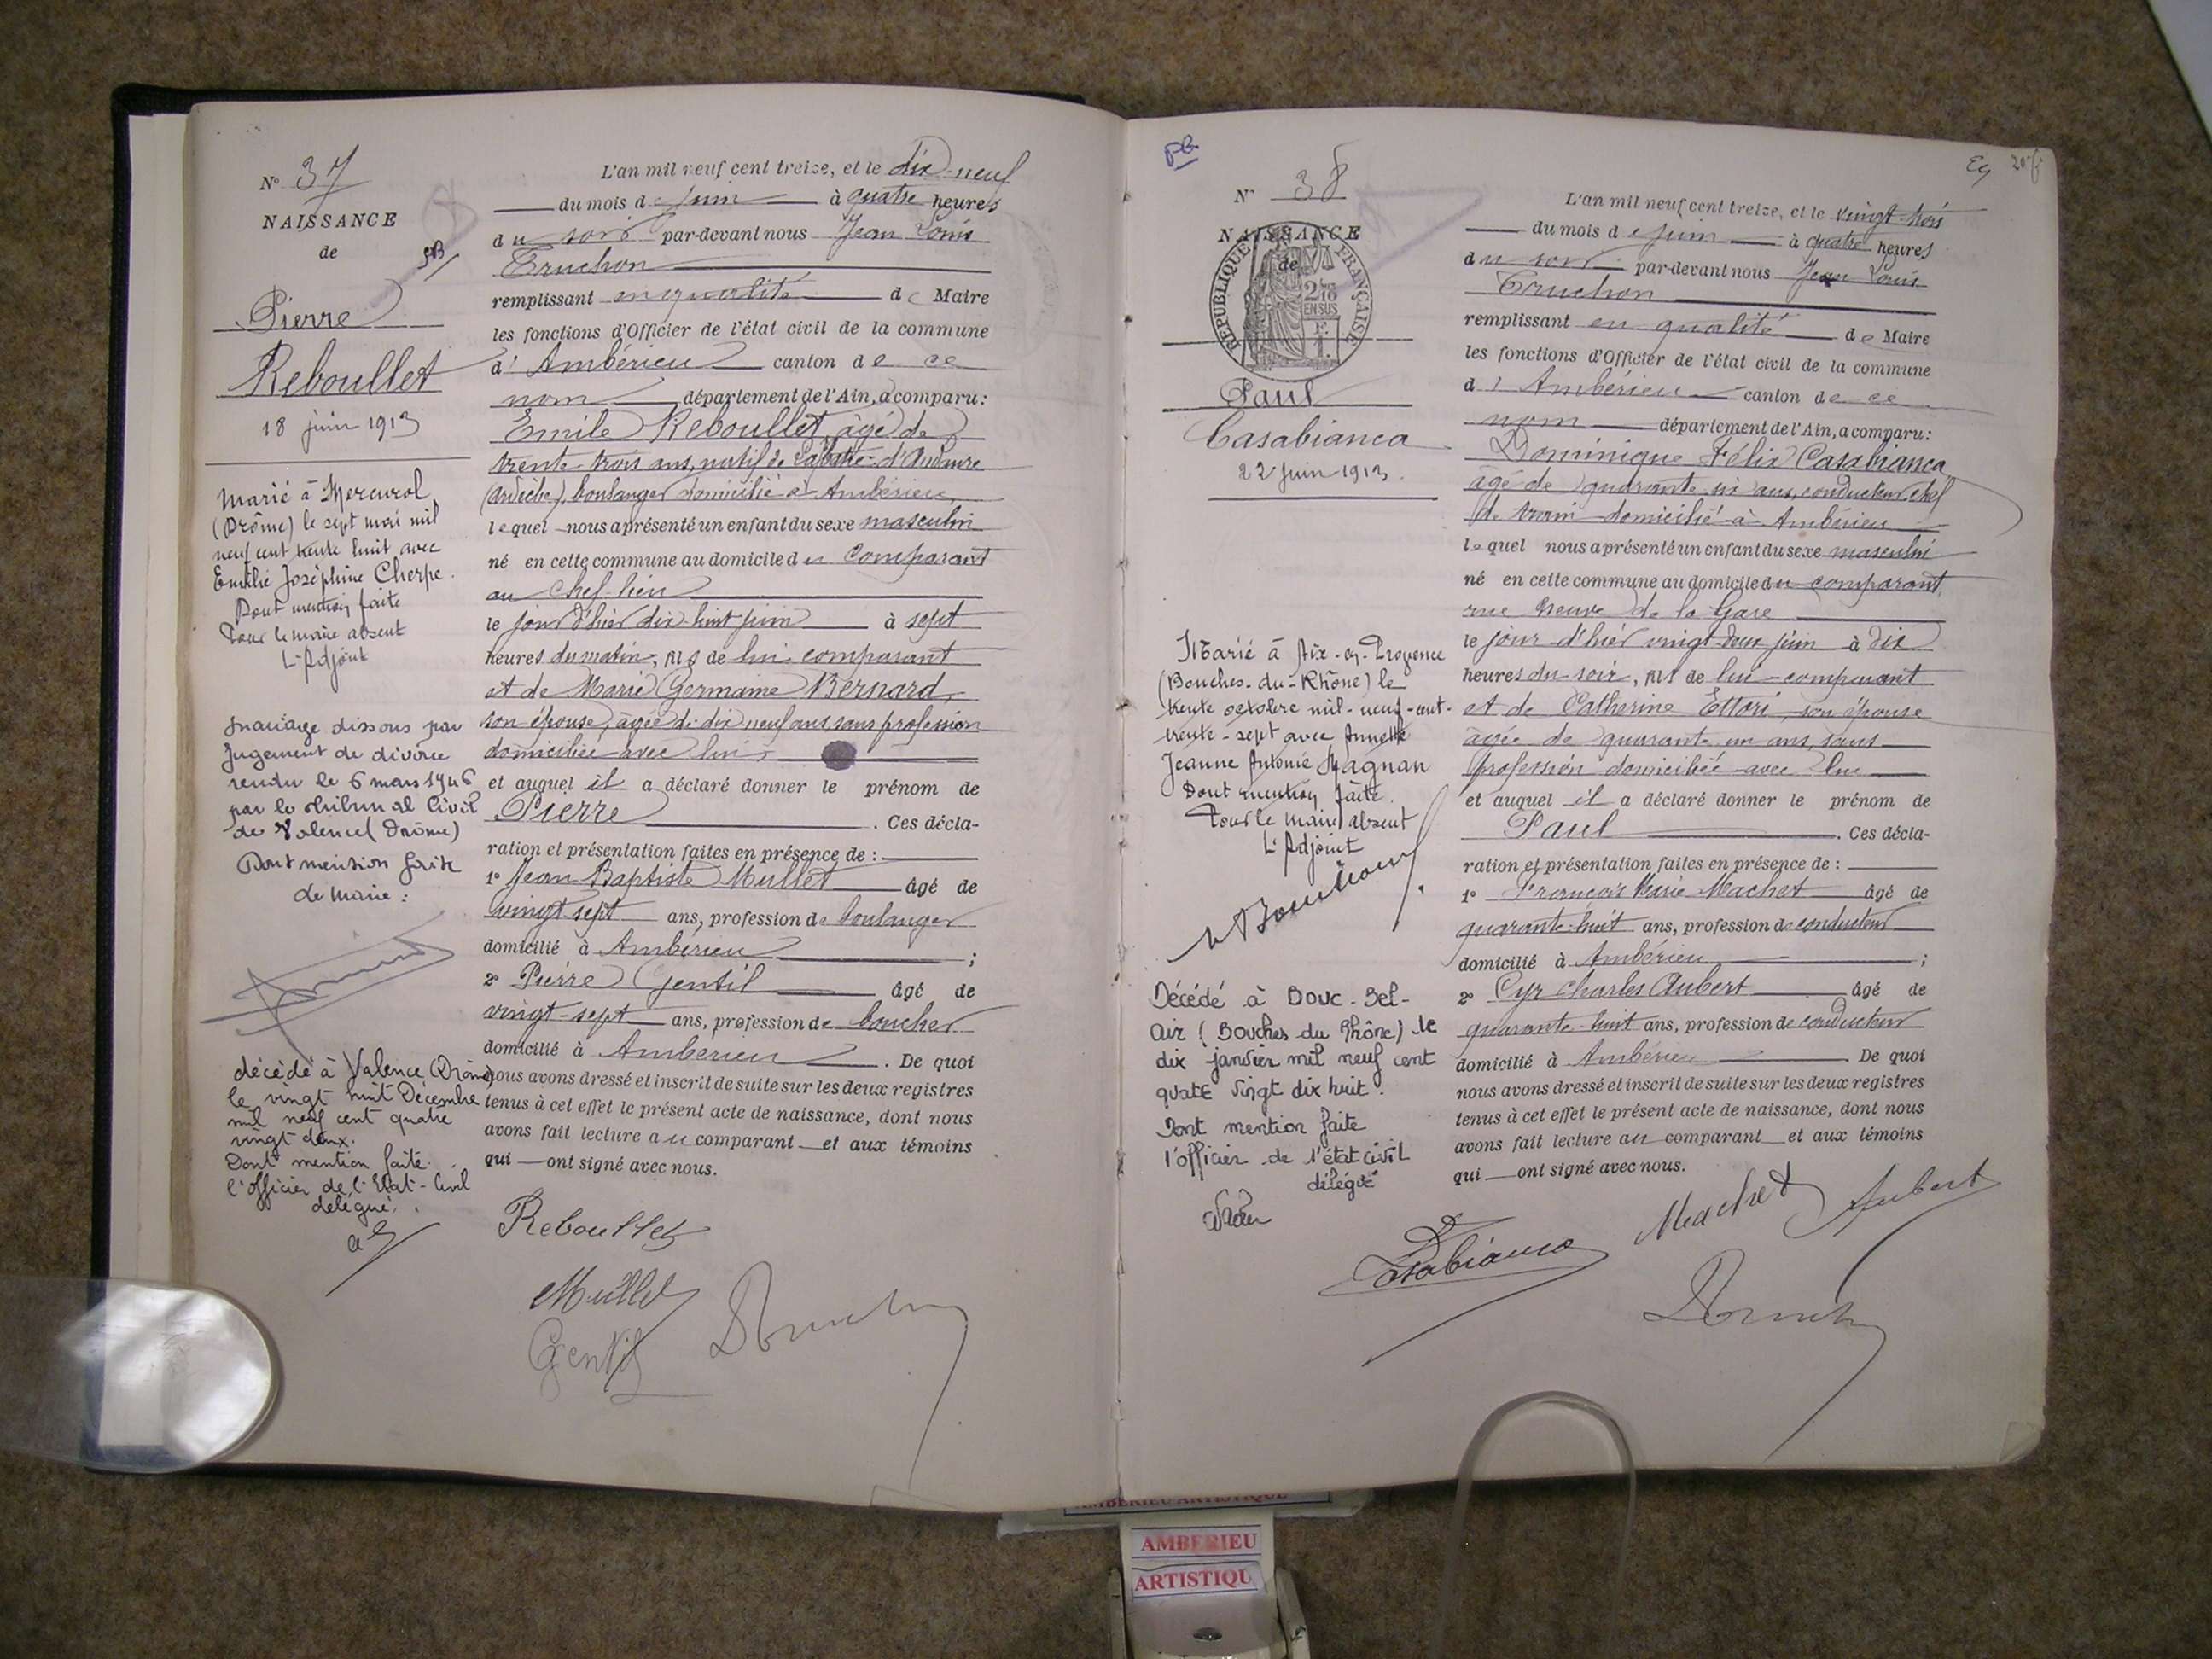 N° 37
NAISSANCE
de
Pierre
Reboullet
18 juin 1913
Marié à Mercurol
(Drôme) le sept mai mil
neuf cent trente huit avec
Emilie Joséphine Cherpe.
Dont mention faite
Pour le maire absent
L'Adjoint
mariage dissous par
jugement de divorce
rendu le 6 mars 1946
par le tribunal Civil
de Valence (Drôme)
Dont mention faite
le Maire :
décédé à Valence (Drôme)
le vingt huit Décembre
mil neuf cent quatre
vingt deux.
Dont mention faite.
l'officier de l'Etat-Civil
délégué.
L'an mil neuf cent treize, et le dix-neuf
du mois de juin à quatre heures
du soir par-devant nous Jean Louis
Truchon
remplissant en qualité de Maire
les fonctions d'Officier de l'état civil de la commune
d' Ambérieu canton de ce
nom département de l'Ain, a comparu :
Emile Reboullet, âgé de
trente-trois ans, natif de Labatie-d'Andaure
(Ardèche), boulanger domicilié à Ambérieu,
lequel nous a présenté un enfant du sexe masculin
né en cette commune au domicile du comparant
au chef-lieu
le jour d'hier dix-huit juin à sept
heures du matin, fils de lui comparant
et de Marie Germaine Bernard,
son épouse, âgée de dix neuf ans, sans profession
domiciliée avec lui
et auquel il a déclaré donner le prénom de
Pierre . Ces décla-
ration et présentation faites en présence de :
1° Jean Baptiste Mullet âgé de
vingt-sept ans, profession de boulanger
domicilié à Ambérieu ;
2° Pierre Gentil âgé de
vingt-sept ans, profession de boucher
domicilié à Ambérieu . De quoi
nous avons dressé et inscrit de suite sur les deux registres
tenus à cet effet le présent acte de naissance, dont nous
avons fait lecture au comparant et aux témoins
qui ont signé avec nous.
Reboullet
Mullet
Gentil
N° 38
NAISSANCE
de
REPUBLIQUE FRANÇAISE
2/10
EN SUS
Paul
Casabianca
22 Juin 1913.
Marié à Aix-en-Provence
(Bouches-du-Rhône) le
trente octobre mil-neuf-cent-
trente-sept avec Annette
Jeanne Antonie Magnan
Dont mention faite.
Pour le maire absent
L'Adjoint
Décédé à Bouc-Bel-
Air (Bouches du Rhône) le
dix janvier mil neuf cent
quatre vingt dix huit.
Dont mention faite
l'officier de l'état civil
délégué
L'an mil neuf cent treize, et le vingt-trois
du mois de juin à quatre heures
du soir par-devant nous Jean Louis
Truchon
remplissant en qualité de Maire
les fonctions d'Officier de l'état civil de la commune
d' Ambérieu canton de ce
nom département de l'Ain, a comparu :
Dominique Félix Casabianca
âgé de quarante six ans, conducteur chef
de train domicilié à Ambérieu
lequel nous a présenté un enfant du sexe masculin
né en cette commune au domicile du comparant,
rue Neuve de la Gare
le jour d'hier vingt-deux juin à dix
heures du soir, fils de lui comparant
et de Catherine Ettori, son épouse
âgée de quarante un ans, sans
profession domiciliée avec lui
et auquel il a déclaré donner le prénom de
Paul . Ces décla-
ration et présentation faites en présence de :
1° François Marie Machet âgé de
quarante-huit ans, profession de conducteur
domicilié à Ambérieu ;
2° Cyr Charles Aubert âgé de
quarante-huit ans, profession de conducteur
domicilié à Ambérieu . De quoi
nous avons dressé et inscrit de suite sur les deux registres
tenus à cet effet le présent acte de naissance, dont nous
avons fait lecture au comparant et aux témoins
qui ont signé avec nous.
Machet Aubert
Casabianca
AMBERIEU ARTISTIQUE
AMBERIEU
ARTISTIQU